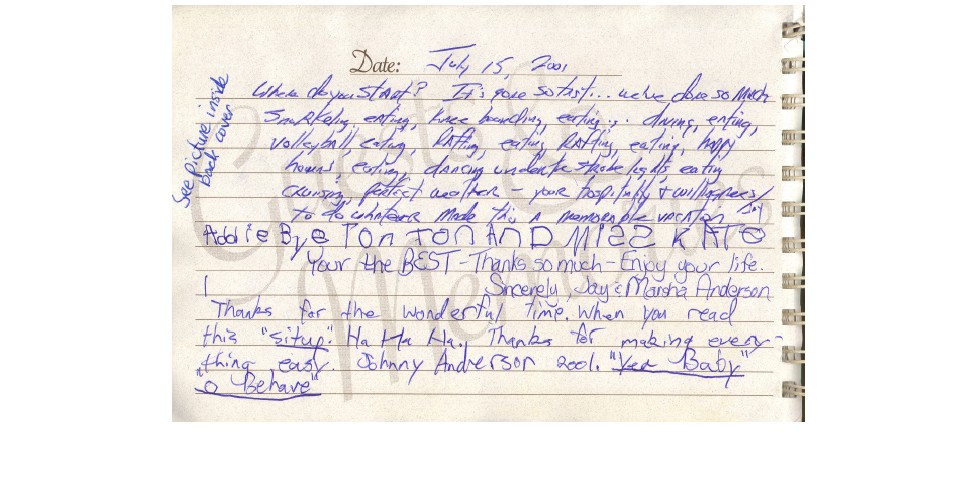 Date: July 15, 2001
Where do you start? It's gone so fast... we've done so much
Snorkeling, eating, knee boarding, eating... driving, eating,
volleyball, eating, Rafting, eating, Rafting, eating, happy
hours, eating, dancing under the strobe lights, eating
cruising, perfect weather - your hospitality & willingness
to do whatever made this a memorable vacation Jay
Addie Bye TOn TOn AND MIZZ KATE
Your the BEST - Thanks so much - Enjoy your life.
Sincerely, Jay & Marsha Anderson
Thanks for the wonderful time. When you read
this "situp". Ha Ha Ha. Thanks for making every-
thing easy. Johnny Anderson 2001. "Yea Baby"
"O Behave"
See picture inside
back cover
Guests &
Memories